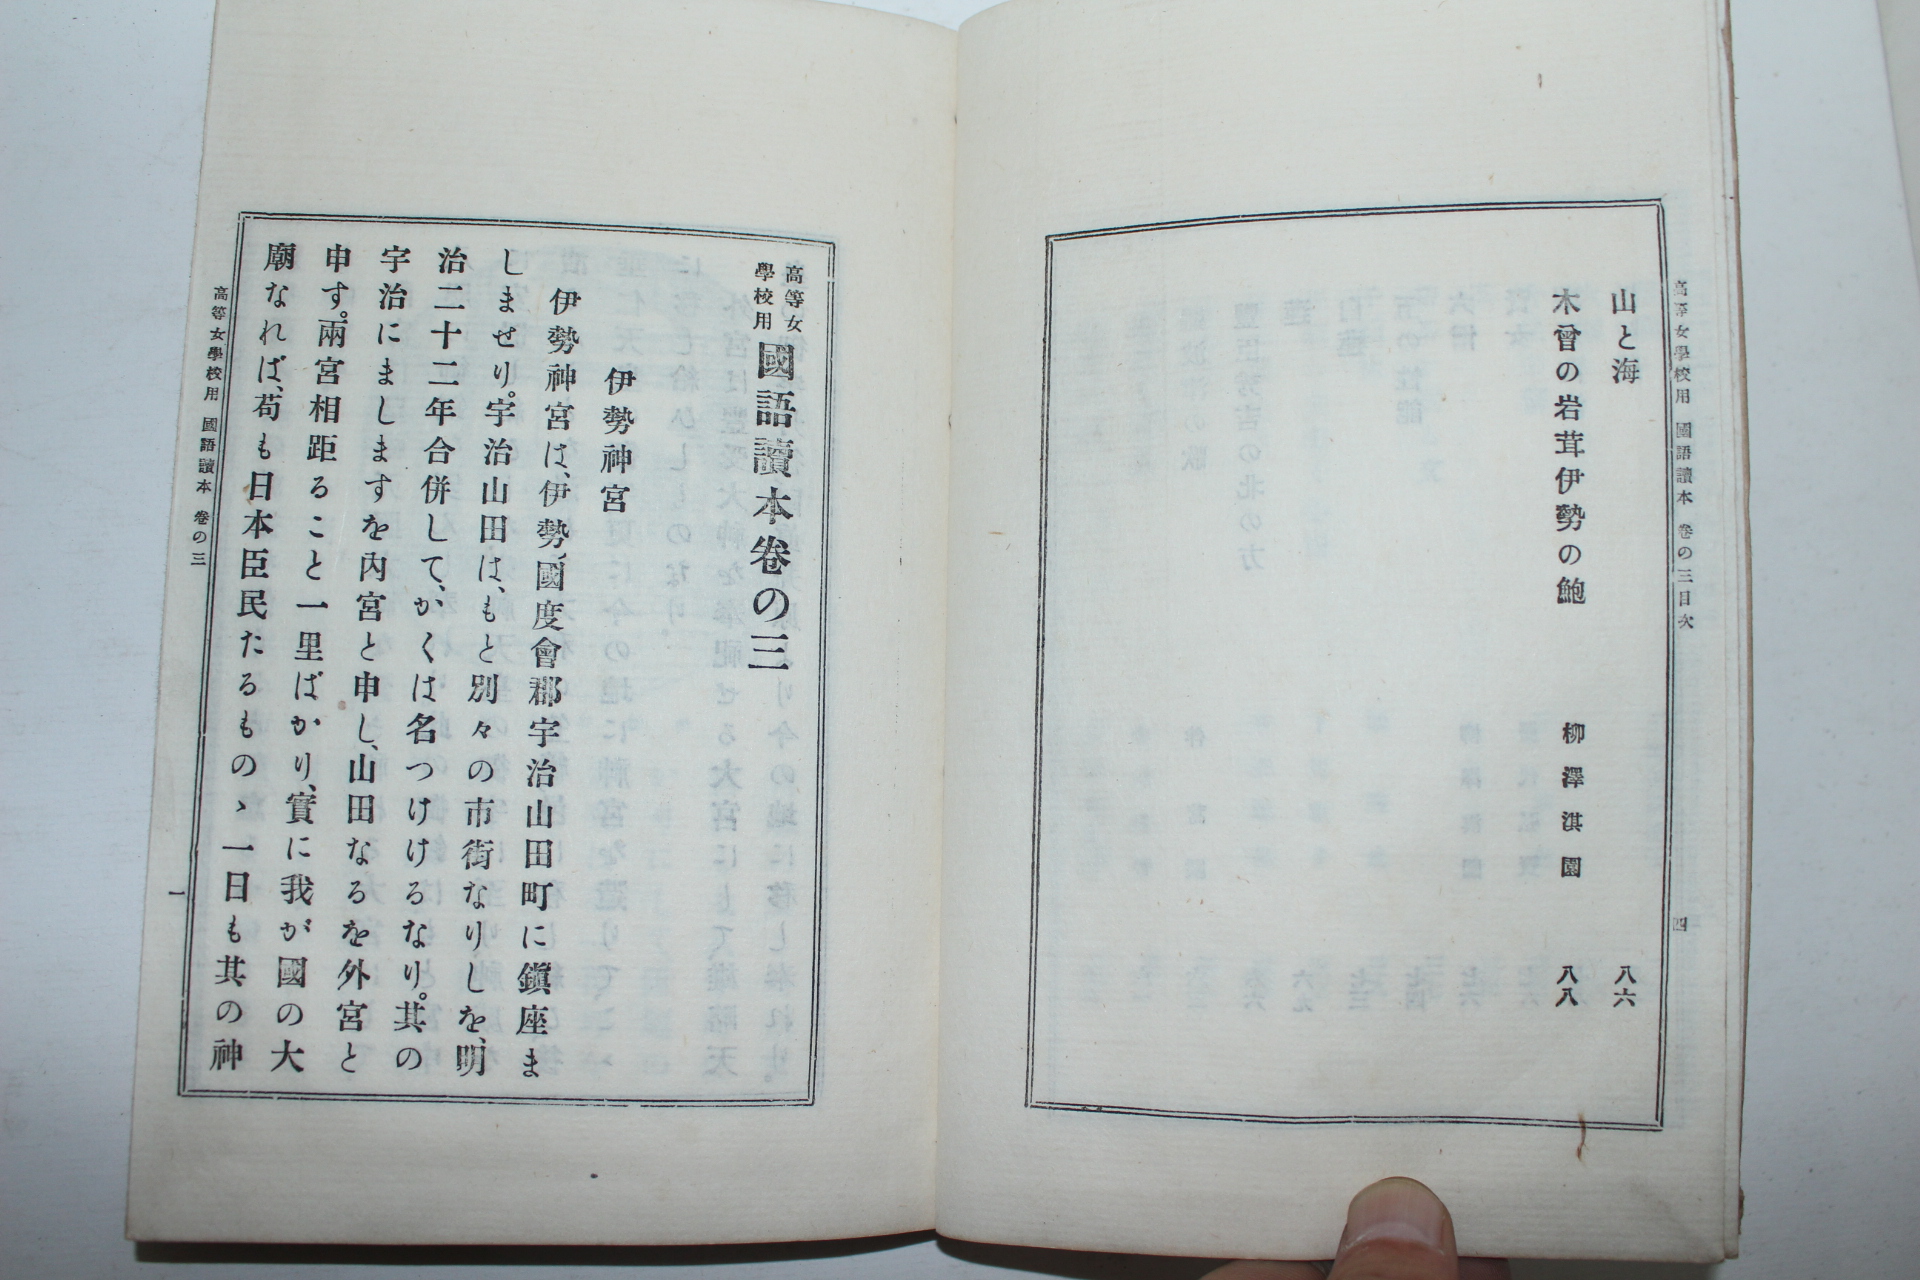 高等女學校用 國語讀本 卷の三目次 四
山と海 八六
木曾の岩茸伊勢の鮑 柳澤淇園 八八
高等女學校用 國語讀本卷の三
伊勢神宮
伊勢神宮は、伊勢國度會郡宇治山田町に鎭座ま
しませり。宇治山田は、もと別々の市街なりしを、明
治二十二年合併して、かくは名つけけるなり。其の
宇治にましますを內宮と申し、山田なるを外宮と
申す。兩宮相距ること一里ばかり、實に我が國の大
廟なれば、苟も日本臣民たるものゝ一日も其の神
高等女學校用 國語讀本 卷の三 一